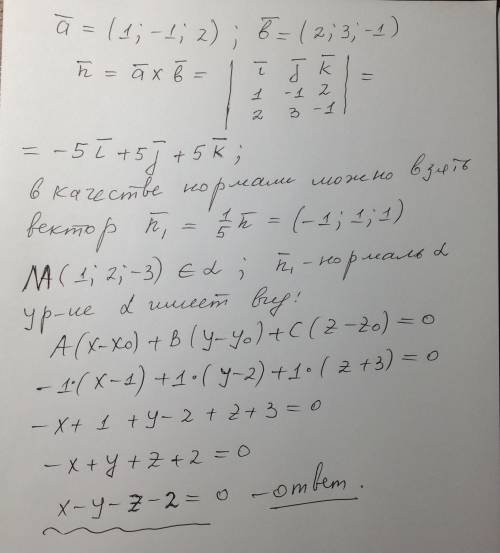 a̅ = (1; -1; 2) ; b̅ = (2; 3; -1)
n̅ = a̅ × b̅ = | i̅ j̅ k̅ | =
1 -1 2
2 3 -1
= -5 i̅ + 5 j̅ + 5 k̅ ;
в качестве нормали можно взять
вектор n̅₁ = 1/5 n̅ = (-1; 1; 1)
M(1; 2; -3) ∈ α ; n̅₁ - нормаль α
ур-ие α имеет вид:
A(x-x₀) + B(y-y₀) + C(z-z₀) = 0
-1·(x-1) + 1·(y-2) + 1·(z+3) = 0
-x + 1 + y - 2 + z + 3 = 0
-x + y + z + 2 = 0
x - y - z - 2 = 0 - ответ.